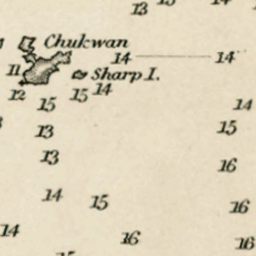 13
Chukwan
14 14
11 Sharp I.
12 15 15 14 14
13 15
13 16
14 15 16
14 16 16